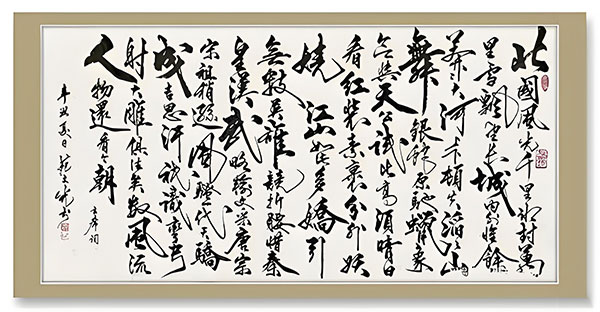 北國風光千里冰封萬
里雪飄望長城内外惟餘
莽大河上下頓失滔々山
舞銀蛇原馳蠟象
欲與天公試比高須晴日
看紅裝素裹分外妖
嬈江山如此多嬌引
無數英雄競折腰惜秦
皇漢武略輸文采唐宗
宋祖稍遜風騷一代天驕
成吉思汗祇識彎弓
射大雕俱往矣數風流
人物還看今朝 主席詞
辛丑夏日